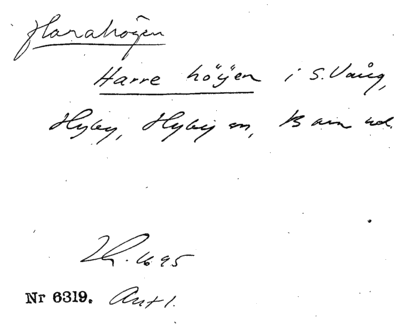 Harahögen
Harre höÿen i S. Vång,
Hyby, Hyby sn, Bara hd.
Lr. 1695
Nr 6319. Ant 1.